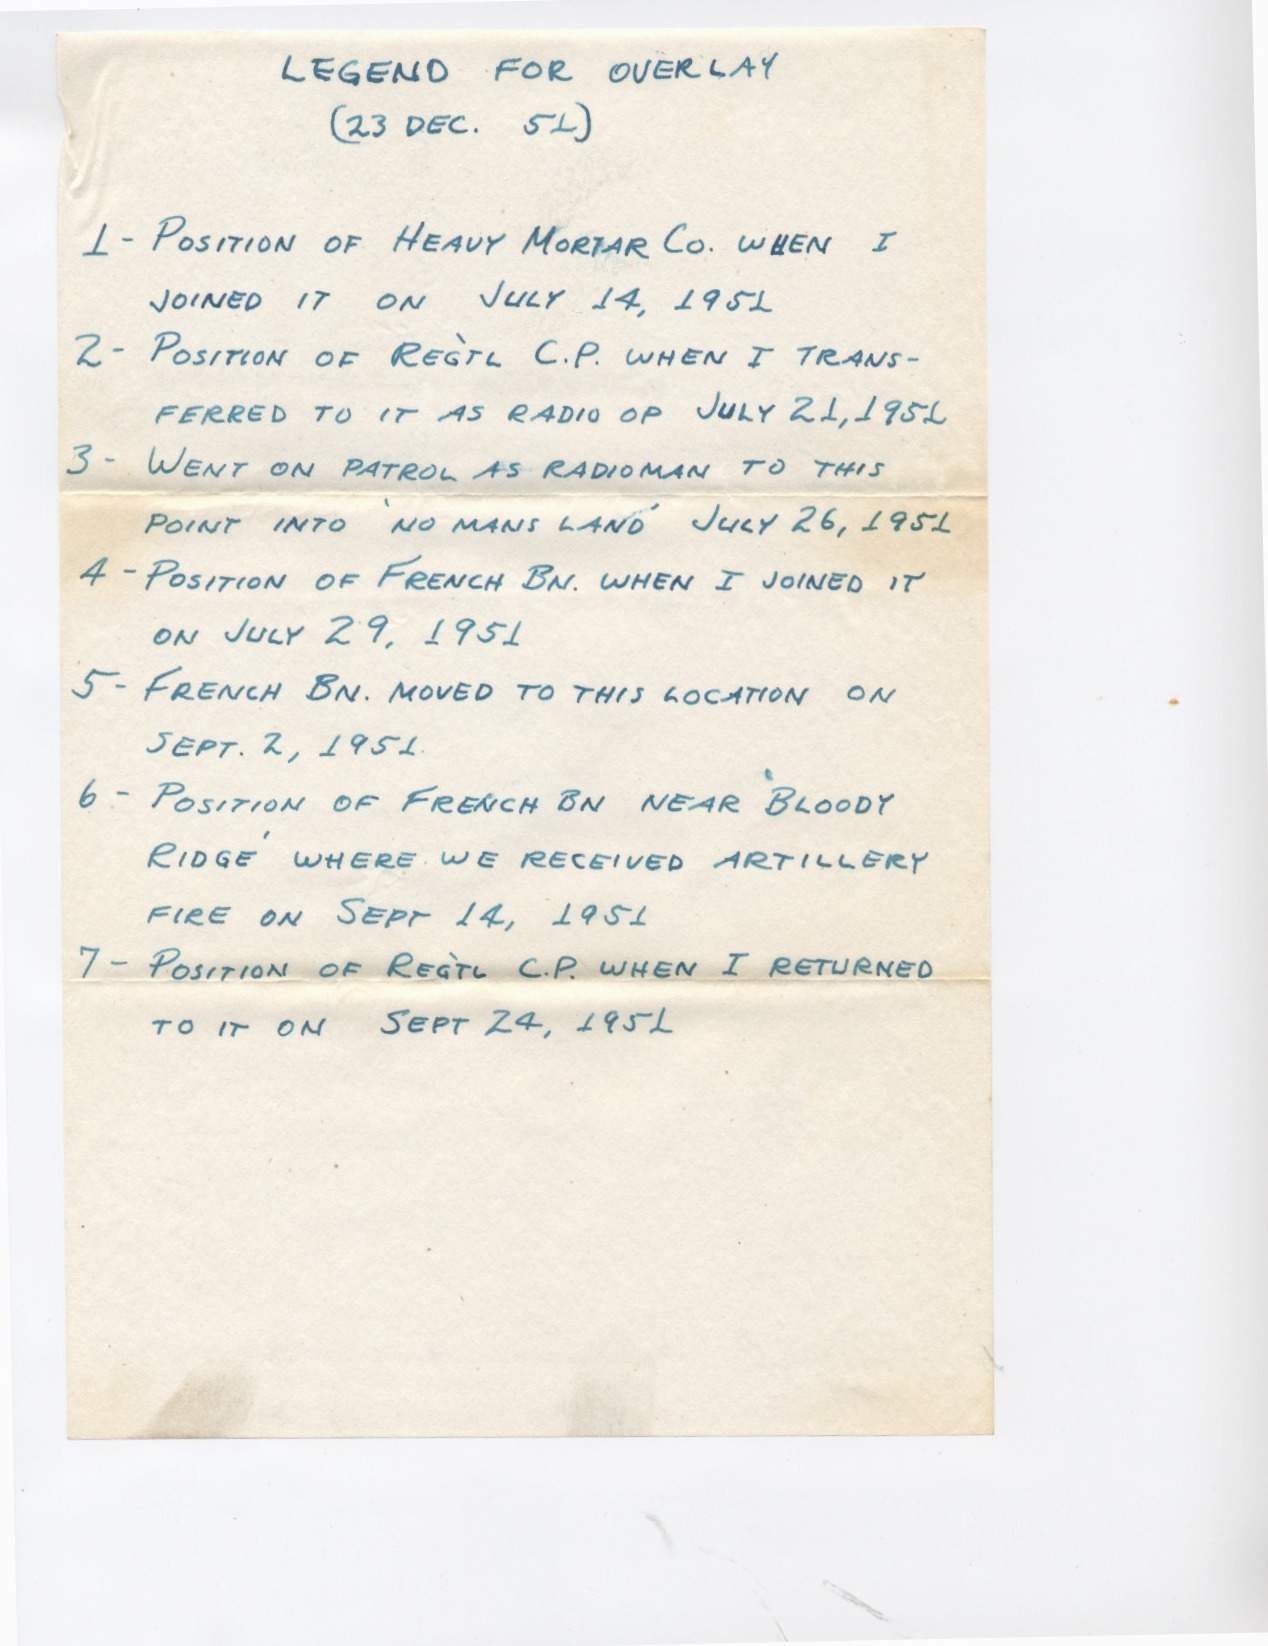 LEGEND FOR OVERLAY
(23 DEC. 51)
1 - POSITION OF HEAVY MORTAR CO. WHEN I
JOINED IT ON JULY 14, 1951
2 - POSITION OF REG'TL C.P. WHEN I TRANS-
FERRED TO IT AS RADIO OP JULY 21, 1951
3 - WENT ON PATROL AS RADIOMAN TO THIS
POINT INTO 'NO MANS LAND' JULY 26, 1951
4 - POSITION OF FRENCH BN. WHEN I JOINED IT
ON JULY 29, 1951
5 - FRENCH BN. MOVED TO THIS LOCATION ON
SEPT. 2, 1951.
6 - POSITION OF FRENCH BN NEAR 'BLOODY
RIDGE' WHERE WE RECEIVED ARTILLERY
FIRE ON SEPT 14, 1951
7 - POSITION OF REG'TL C.P. WHEN I RETURNED
TO IT ON SEPT 24, 1951